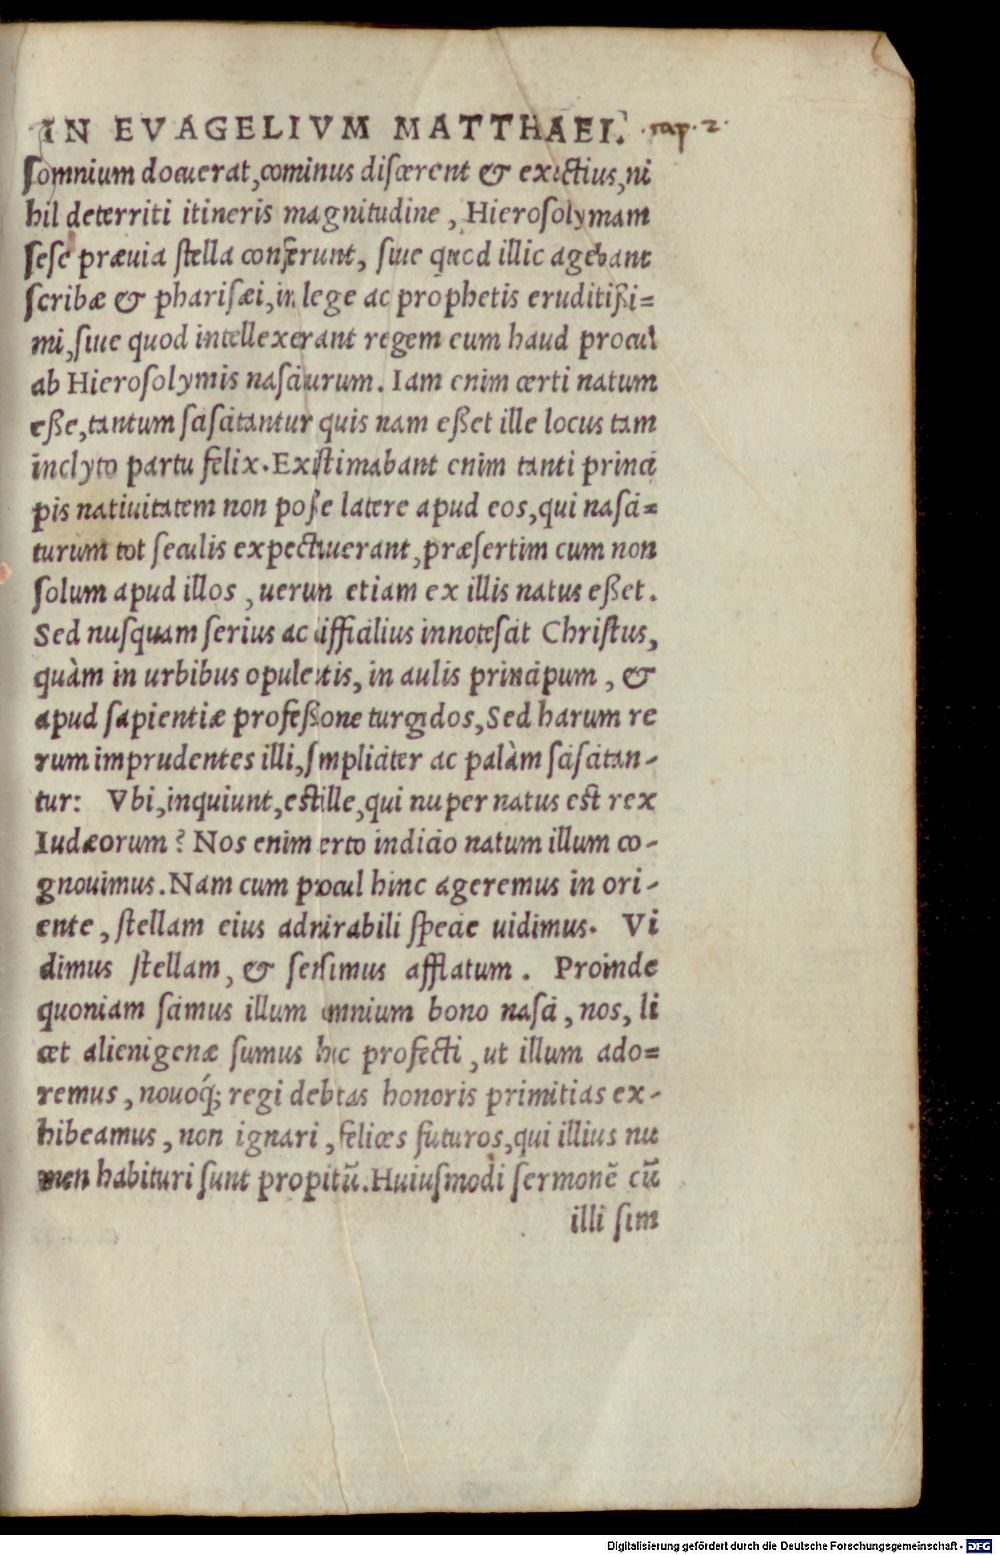 IN EVAGELIVM MATTHAEI. cap. 2.
somnium docuerat, cominus discerent & exactius, ni
hil deterriti itineris magnitudine, Hierosolymam
sese præuia stella conferunt, siue quod illic agebant
scribæ & pharisæi, in lege ac prophetis eruditißi=
mi, siue quod intellexerant regem eum haud procul
ab Hierosolymis nasciturum. Iam enim certi natum
eße, tantum sciscitantur quis nam eßet ille locus tam
inclyto partu felix. Existimabant enim tanti princi
pis natiuitatem non posse latere apud eos, qui nasci=
turum tot seculis expectauerant, præsertim cum non
solum apud illos, uerun etiam ex illis natus eßet.
Sed nusquam serius ac difficilius innotescit Christus,
quàm in urbibus opulentis, in aulis principum, &
apud sapientiæ profeßione turgidos, Sed harum re
rum imprudentes illi, simpliciter ac palàm sciscitan-
tur: Vbi, inquiunt, est ille, qui nuper natus est rex
Iudæorum? Nos enim certo indicio natum illum co-
gnouimus. Nam cum procul hinc ageremus in ori-
ente, stellam eius admirabili specie uidimus. Vi
dimus stellam, & sensimus afflatum. Proinde
quoniam scimus illum omnium bono nasci, nos, li
cet alienigenæ sumus huc profecti, ut illum ado=
remus, nouoq́; regi debitas honoris primitias ex-
hibeamus, non ignari, felices futuros, qui illius nu
men habituri sunt propitiũ. Huiusmodi sermonẽ cũ
illi sim
Digitalisierung gefördert durch die Deutsche Forschungsgemeinschaft - DFG